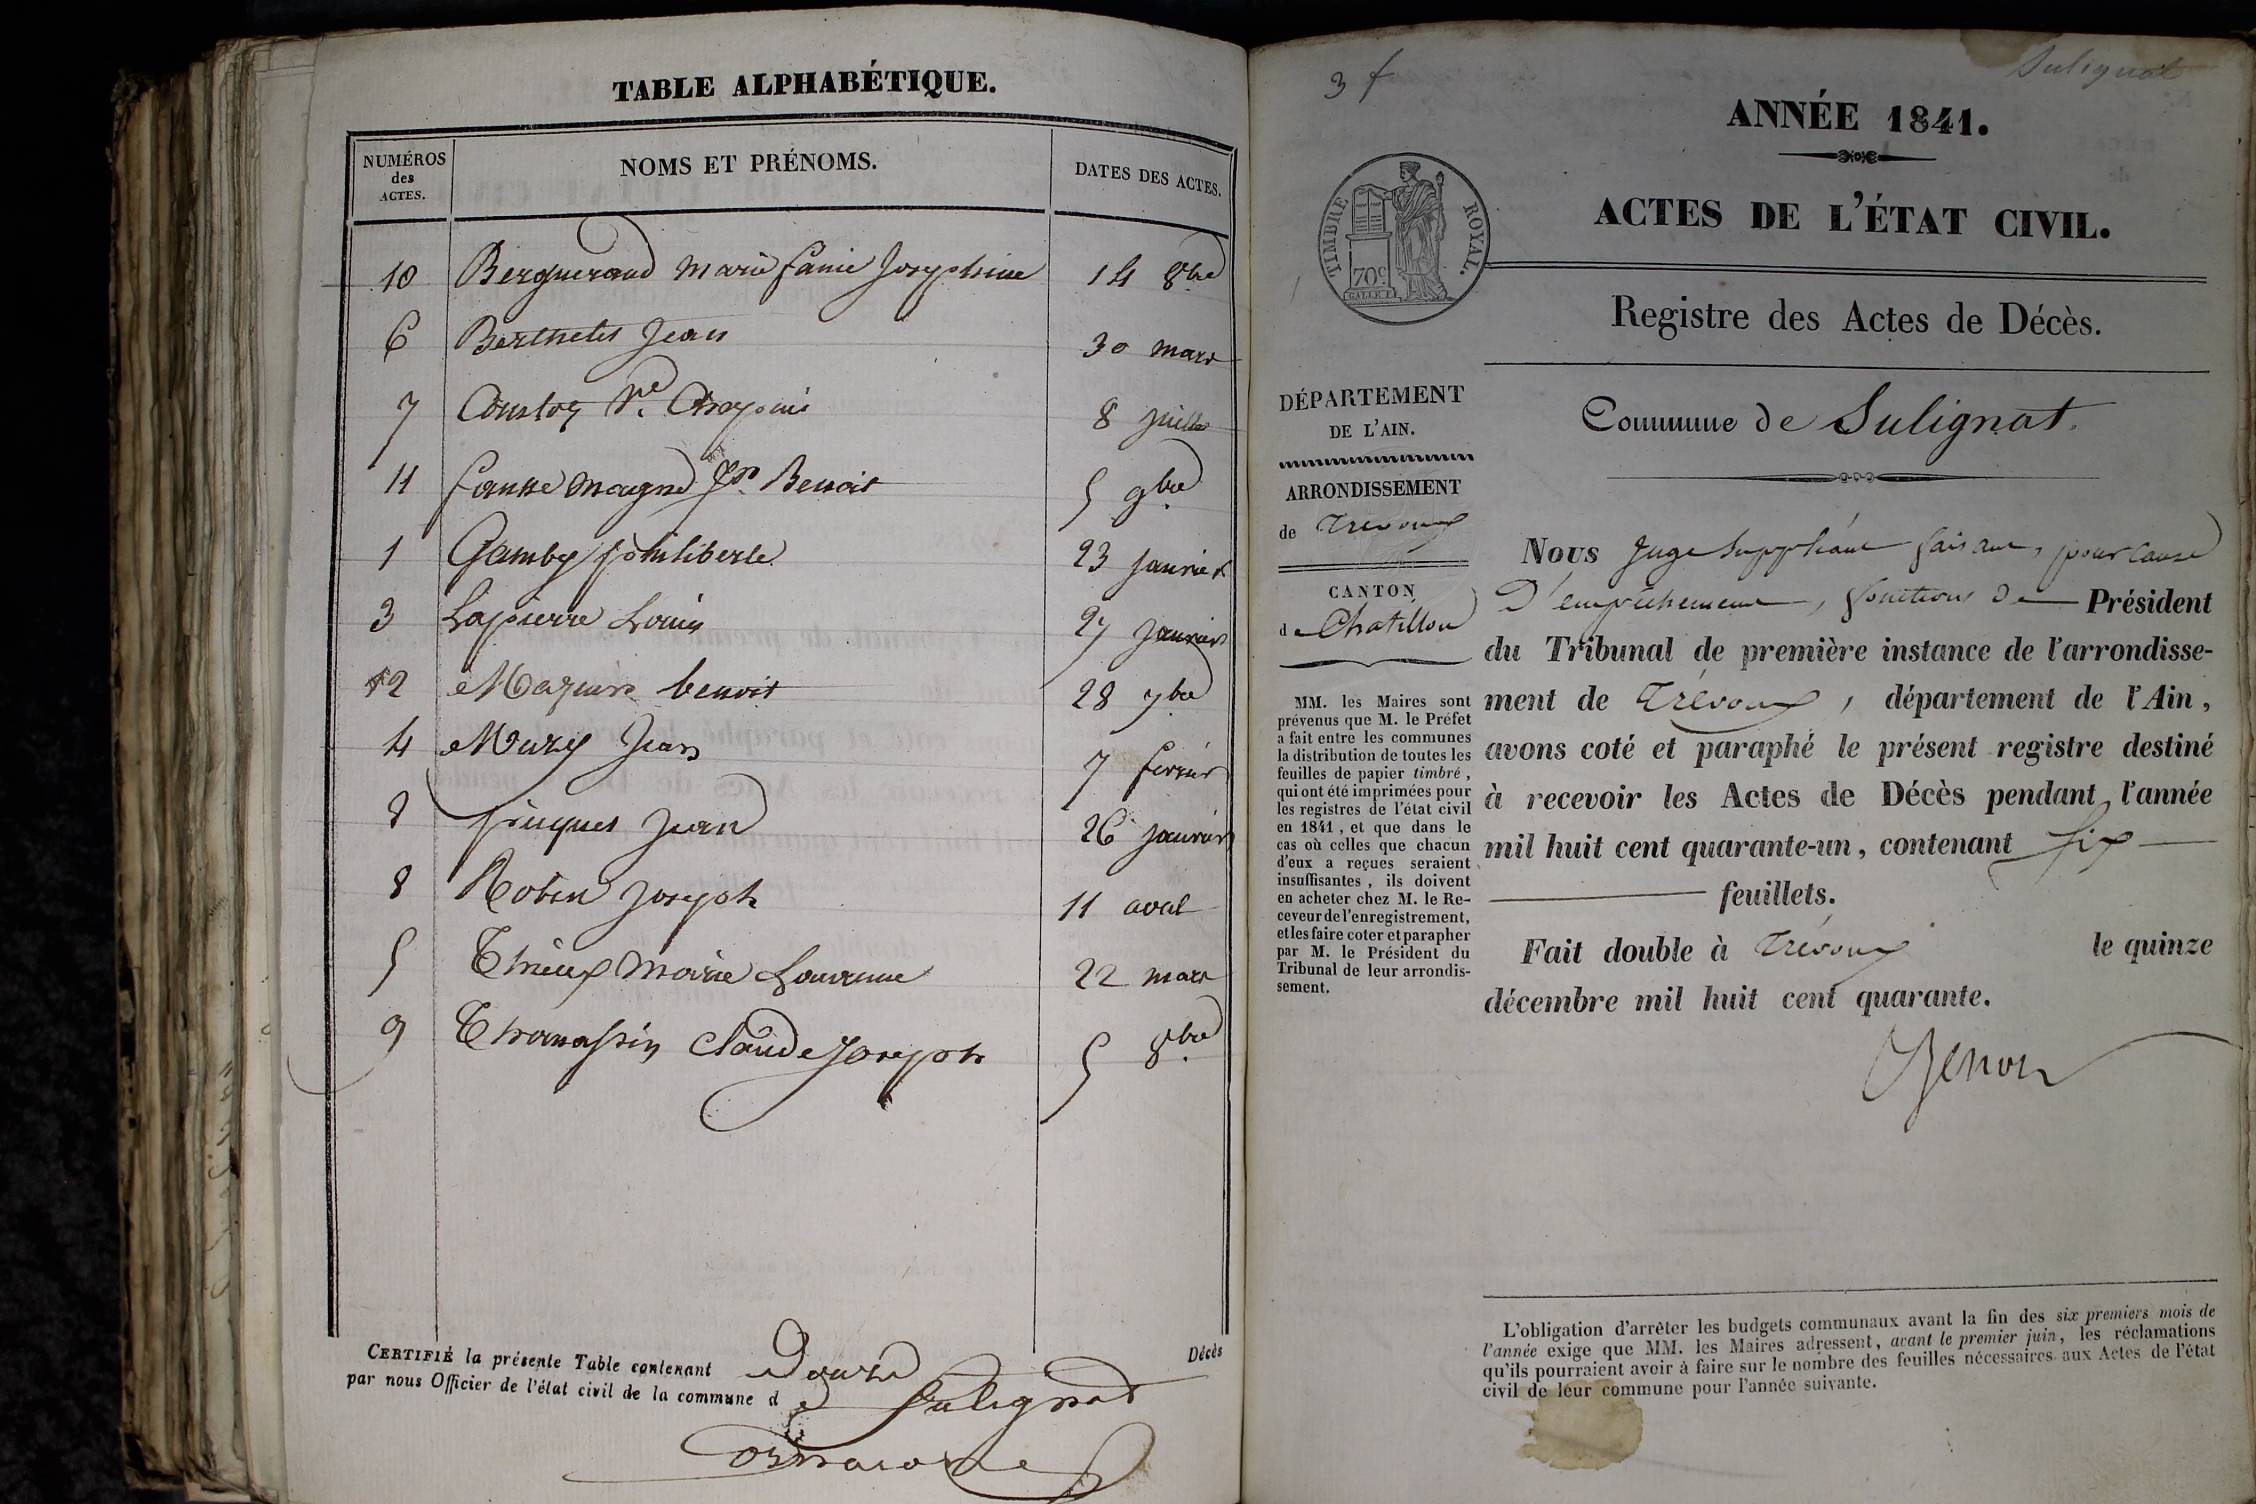 TABLE ALPHABÉTIQUE.
NUMÉROS
des
ACTES.
NOMS ET PRÉNOMS.
DATES DES ACTES.
10 Bergueraud marie fanie Josephine 14 8bre
6 Berthelet Jean 30 mars
7 Ve 8 juillet
11 Benoit 5 9bre
1 Gamby philiberte 23 janvier
3 Lapierre Louis 27 janvier
12 benoit 28 7bre
4 Mury Jean 7 fevrier
8 Jean 26 janvier
8 Robin Joseph 11 avril
5 Marie Laurence 22 mars
9 Thomassin Claude Joseph 5 8bre
CERTIFIÉ la présente Table contenant Douze Décès
par nous Officier de l'état civil de la commune de Sulignat
3 f
Sulignat
ANNÉE 1841.
ACTES DE L'ÉTAT CIVIL.
TIMBRE ROYAL.
70c
Registre des Actes de Décès.
DÉPARTEMENT
DE L'AIN.
ARRONDISSEMENT
de Trévoux
CANTON
de Chatillon
MM. les Maires sont
prévenus que M. le Préfet
a fait entre les communes
la distribution de toutes les
feuilles de papier timbré,
qui ont été imprimées pour
les registres de l'état civil
en 1841, et que dans le
cas où celles que chacun
d'eux a reçues seraient
insuffisantes, ils doivent
en acheter chez M. le Re-
ceveur de l'enregistrement,
et les faire coter et parapher
par M. le Président du
Tribunal de leur arrondis-
sement.
Commune de Sulignat.
Nous Juge Suppléant faisant, pour cause
D'empêchement, fonctions de Président
du Tribunal de première instance de l'arrondisse-
ment de Trévoux, département de l'Ain,
avons coté et paraphé le présent registre destiné
à recevoir les Actes de Décès pendant l'année
mil huit cent quarante-un, contenant six
feuillets.
Fait double à Trévoux le quinze
décembre mil huit cent quarante.
L'obligation d'arrêter les budgets communaux avant la fin des six premiers mois de
l'année exige que MM. les Maires adressent, avant le premier juin, les réclamations
qu'ils pourraient avoir à faire sur le nombre des feuilles nécessaires aux Actes de l'état
civil de leur commune pour l'année suivante.